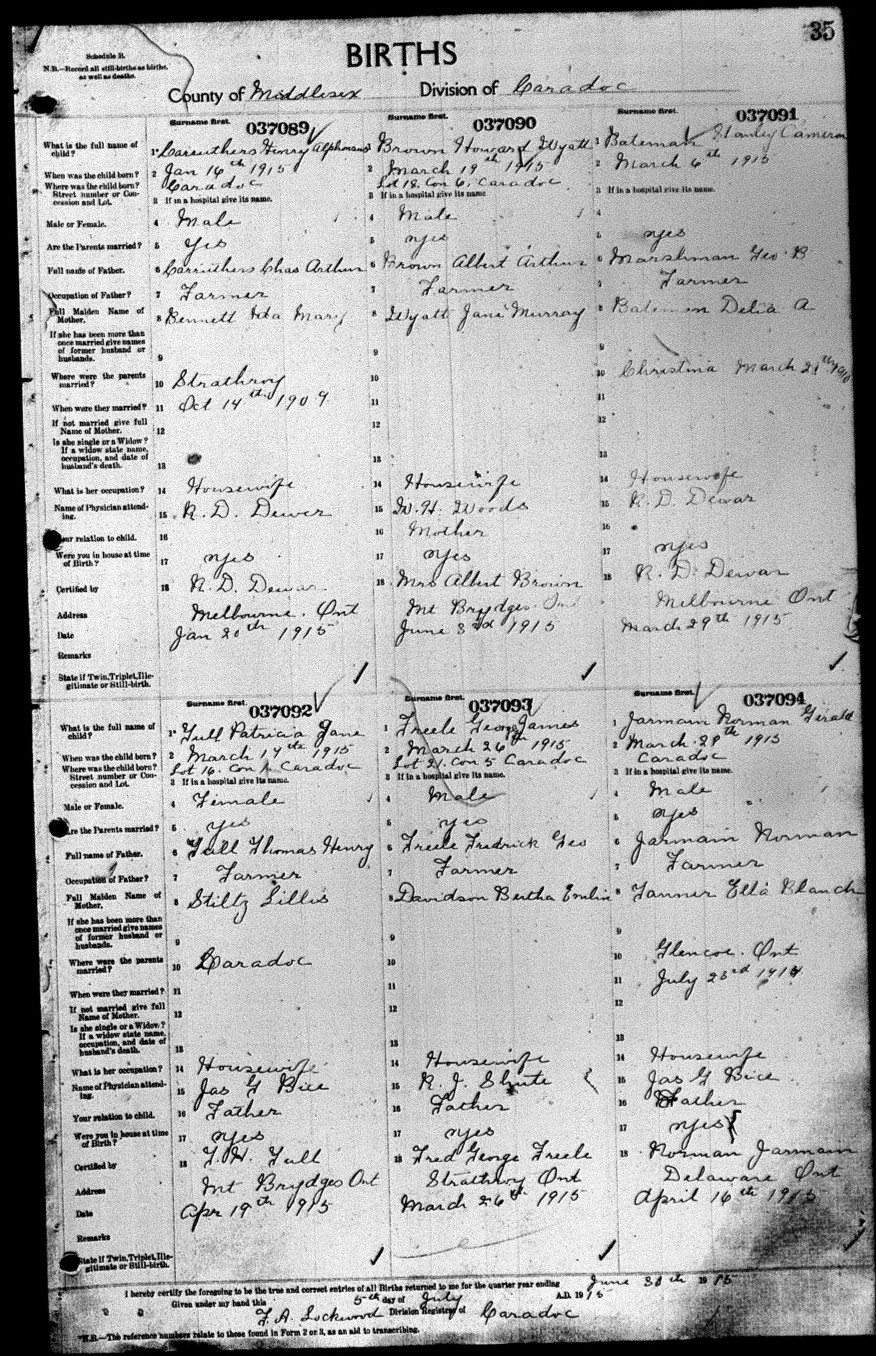 35
Schedule B.
N.B.—Record all still-births as births, as well as deaths.
BIRTHS
County of Middlesex Division of Caradoc
Surname first. Surname first. Surname first.
037089 037090 037091
What is the full name of child? 1 Caruthers Henry Alphonsus 1 Brown Howard Wyatt 1 Bateman Stanley Cameron
When was the child born? 2 Jan 16th 1915 2 March 19th 1915 2 March 6th 1915
Where was the child born? Caradoc Lot 18. Con 6. Caradoc
Street number or Concession and Lot. 3 If in a hospital give its name. 3 If in a hospital give its name. 3 If in a hospital give its name.
Male or Female. 4 Male 4 Male 4
Are the Parents married? 5 Yes 5 yes 5 yes
Full name of Father. 6 Carruthers Chas Arthur 6 Brown Albert Arthur 6 Marshman Geo B
Occupation of Father? 7 Farmer 7 Farmer 7 Farmer
Full Maiden Name of Mother. 8 Bennett Ida Mary 8 Wyatt Jane Murray 8 Bateman Delia A
If she has been more than once married give names of former husband or husbands. 9 9 9
Where were the parents married? 10 Strathroy 10 10 Christina March 21th 1910
When were they married? 11 Oct 14th 1909 11 11
If not married give full Name of Mother. 12 12 12
Is she single or a Widow? If a widow state name, occupation, and date of husband's death. 13 13 13
What is her occupation? 14 Housewife 14 Housewife 14 Housewife
Name of Physician attending. 15 R. D. Dewer 15 W. H. Woods 15 R. D. Dewar
Your relation to child. 16 16 Mother 16
Were you in house at time of Birth? 17 yes 17 yes 17 yes
Certified by 18 R. D. Dewar 18 Mrs Albert Brown 18 R. D. Dewar
Address Melbourne. Ont Mt Brydges Ont Melbourne Ont
Date Jan 20th 1915 June 3rd 1915 March 29th 1915
Remarks
State if Twin, Triplet, Illegitimate or Still-birth.
Surname first. Surname first. Surname first.
037092 037093 037094
What is the full name of child? 1 Tull Patricia Jane 1 Freele George James 1 Jarmain Norman Gerald
When was the child born? 2 March 17th 1915 2 March 26th 1915 2 March 29th 1915
Where was the child born? Lot 16. Con Caradoc Lot 21. Con 5 Caradoc Caradoc
Street number or Concession and Lot. 3 If in a hospital give its name. 3 If in a hospital give its name. 3 If in a hospital give its name.
Male or Female. 4 Female 4 Male 4 Male
Are the Parents married? 5 yes 5 yes 5 yes
Full name of Father. 6 Tull Thomas Henry 6 Freele Fredrick Geo 6 Jarmain Norman
Occupation of Father? 7 Farmer 7 Farmer 7 Farmer
Full Maiden Name of Mother. 8 Stiltz Lillis 8 Davidson Bertha Emlin 8 Tanner Ella Blanch
If she has been more than once married give names of former husband or husbands. 9 9 9
Where were the parents married? 10 Caradoc 10 10 Glencoe. Ont
When were they married? 11 11 11 July 23rd 1914
If not married give full Name of Mother. 12 12 12
Is she single or a Widow? If a widow state name, occupation, and date of husband's death. 13 13 13
What is her occupation? 14 Housewife 14 Housewife 14 Housewife
Name of Physician attending. 15 Jas G Bice 15 R. J. Shute 15 Jas G Bice
Your relation to child. 16 Father 16 Father 16 Father
Were you in house at time of Birth? 17 yes 17 yes 17 yes
Certified by 18 T. H. Tull 18 Fred George Freele 18 Norman Jarmain
Address Mt Brydges Ont Strathroy Ont Delaware Ont
Date Apr 19th 1915 March 26th 1915 April 16th 1915
Remarks
State if Twin, Triplet, Illegitimate or Still-birth.
I hereby certify the foregoing to be the true and correct entries of all Births returned to me for the quarter year ending June 30th 1915
Given under my hand this 5th day of July A.D. 1915
F. A. Lockwood Division Registrar of Caradoc
*N.B.—The reference numbers relate to those found in Form 2 or 3, as an aid to transcribing.